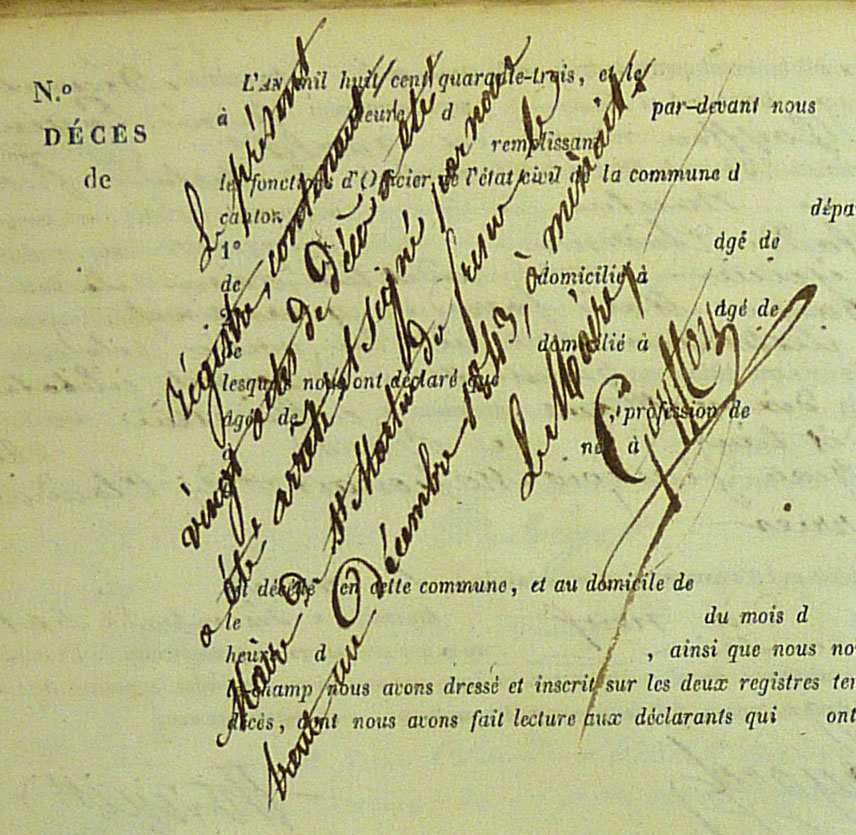 N.º
DÉCÈS
de
L'AN mil huit cent quarante-trois, et le
à heure d par-devant nous
remplissant
les fonctions d'Officier de l'état civil de la commune d
canton dépa
1º âgé de
de domicilié à
2º âgé de
de domicilié à
lesquels nous ont déclaré que
âgé de , profession de
né à
est décédé en cette commune, et au domicile de
le du mois d
heure d , ainsi que nous no
le-champ nous avons dressé et inscrit sur les deux registres ten
décès, dont nous avons fait lecture aux déclarants qui ont
Le présent
régistre, contenant
vingt actes de Décès a été
a été arrêté et signé par nous
Maire de St Martin de le
trente un Décembre 1843, à minuit.
Le Maire,